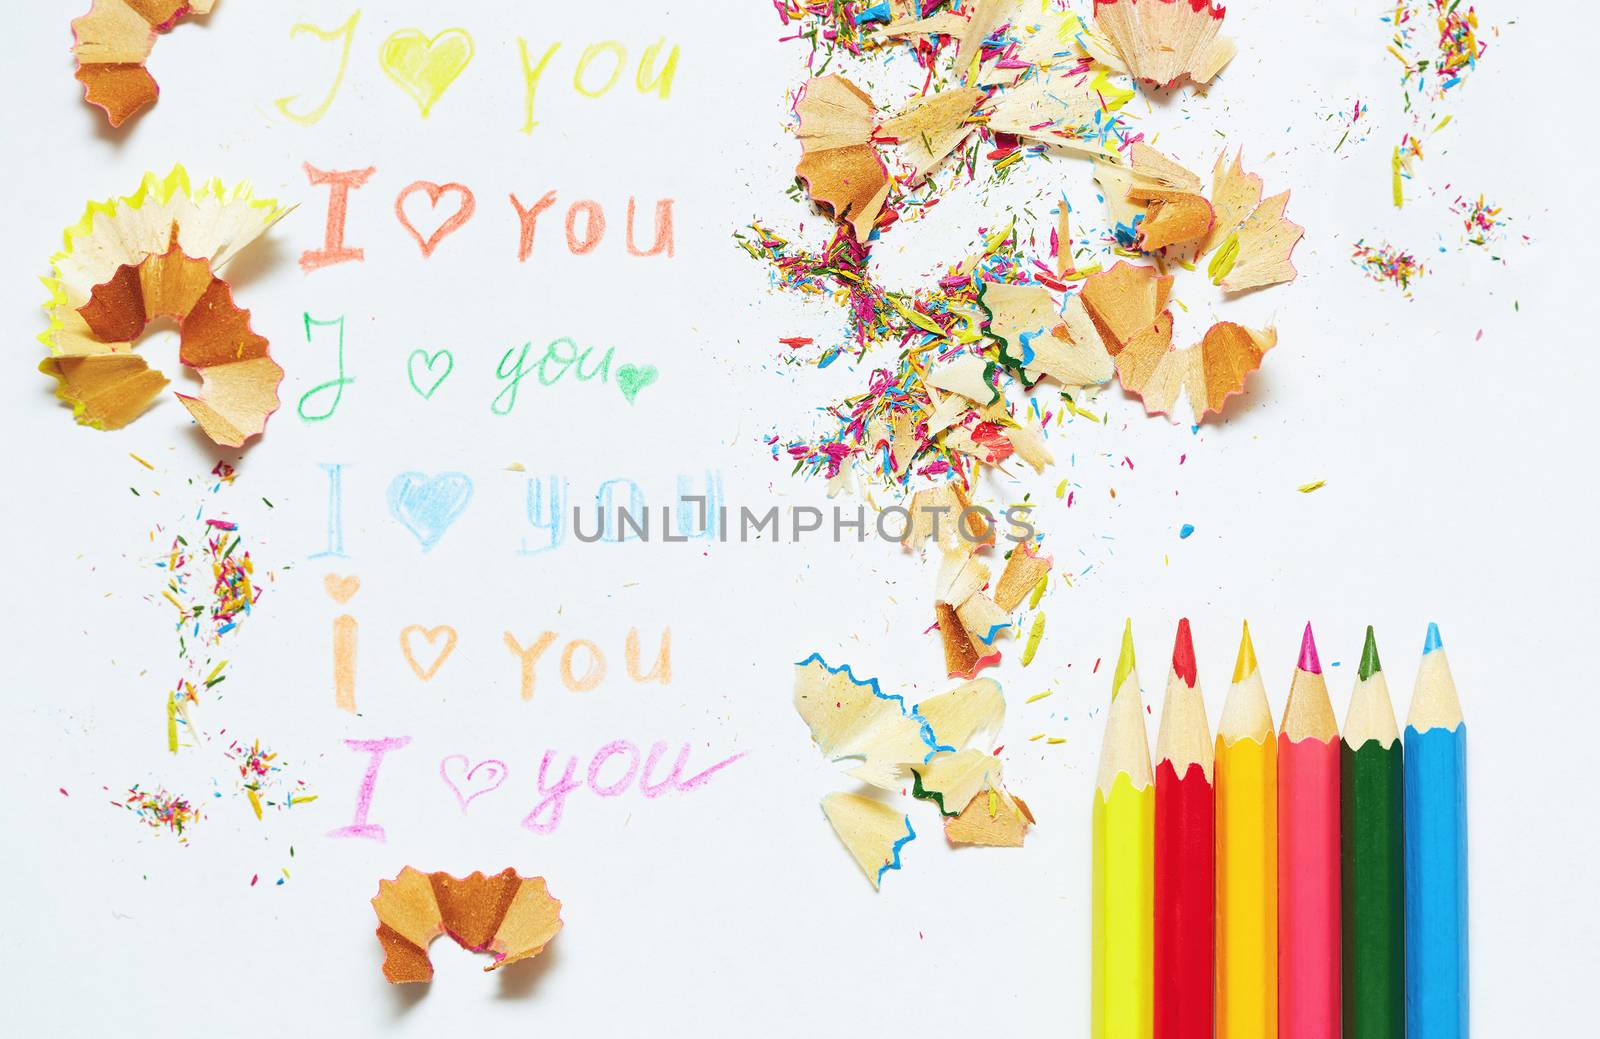 I ♥ you
I ♥ You
I ♥ you♥
I ♥ you
UNLIMPHOTOS
i ♥ You
I ♥ you